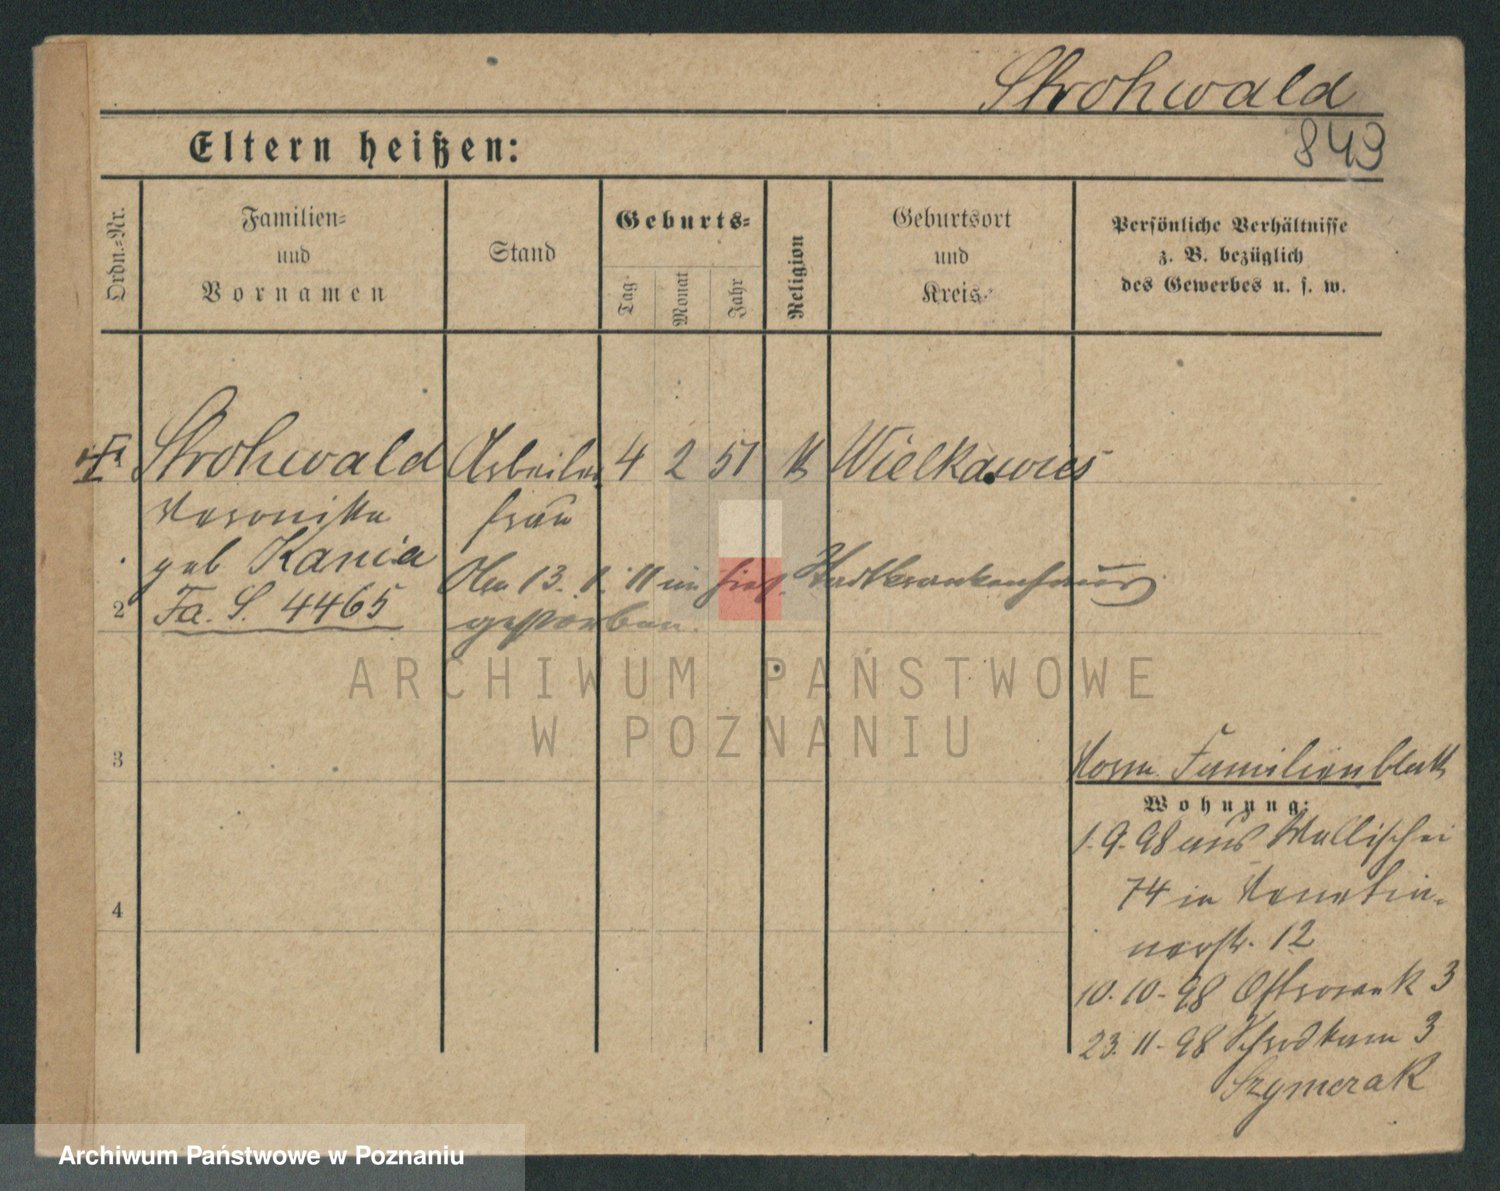 Strohwald
849
Eltern heißen:
Ordn.-Nr.
Familien-
und
Vornamen
Stand
Geburts-
Tag
Monat
Jahr
Religion
Geburtsort
und
Kreis
Persönliche Verhältnisse
z. B. bezüglich
des Gewerbes u. s. w.
Strohwald Arbeiter 4 2 51 k Wielkawies
Veronika frau
geb Kania
Am 13. 1. 11 im hies. Stadtkrankenhause
2 Fa. S. 4465
gestorben.
ARCHIWUM PAŃSTWOWE
W POZNANIU
3
Familienblatt
Wohnung:
1.9.98 aus Wallischei
74 in Venetia-
nerstr. 12
4
10.10.98 Ostrowek 3
23.11.98 Schrodkam 3
Szymczak
Archiwum Państwowe w Poznaniu